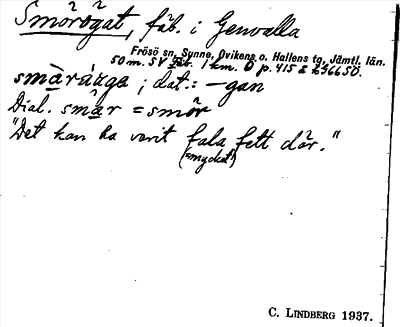 Smörögat, fäb. i Genvalla
Frösö sn, Sunne, Ovikens o. Hallens tg, Jämtl. län.
50 m. SV Fäb. 1 km. O p. 415 &
smàrárga ; dat.: – gan
Dial. smär = smör
"Det kan ha varit fala fett där."
(=mycket)
C. LINDBERG 1937.